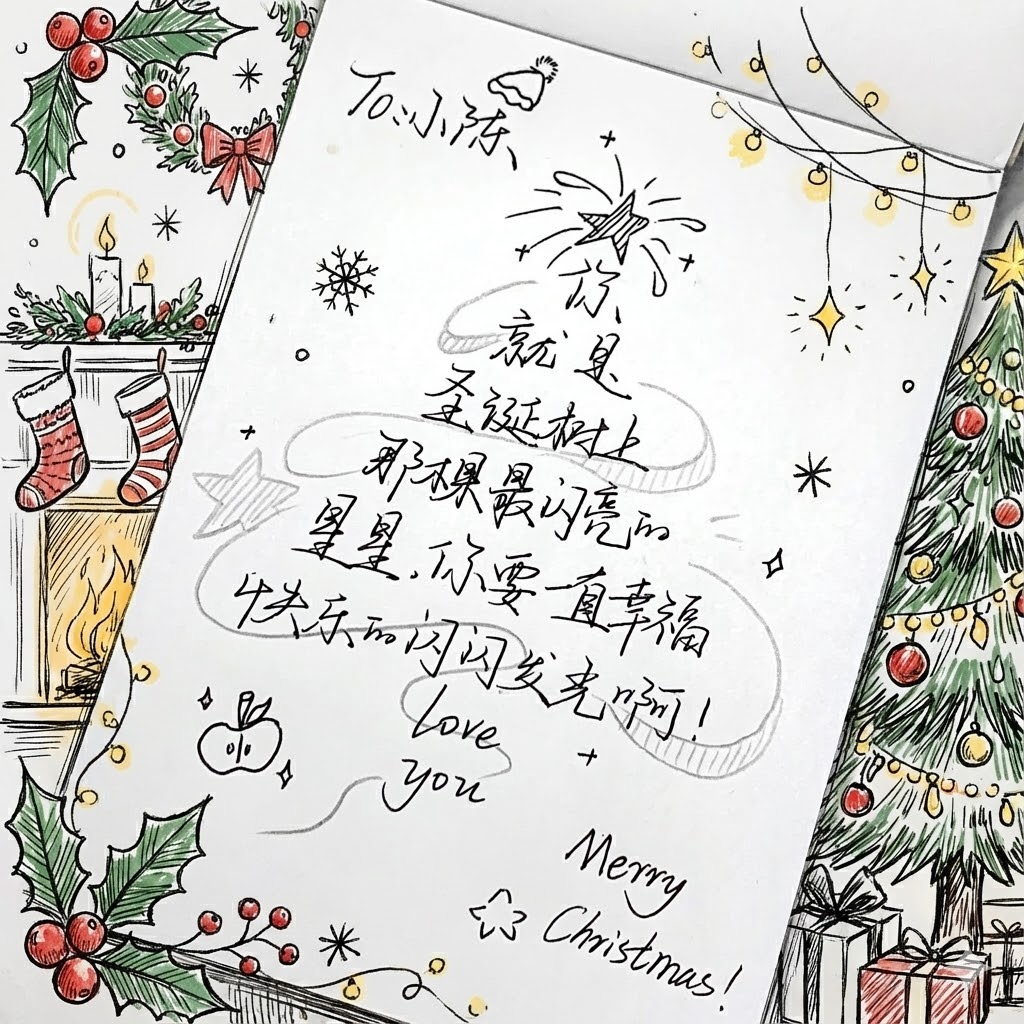 To:小陈、
你
就是
圣诞树上
那棵最闪亮的
星星,你要一直幸福
快乐的闪闪发光啊!
love
you
Merry
Christmas!